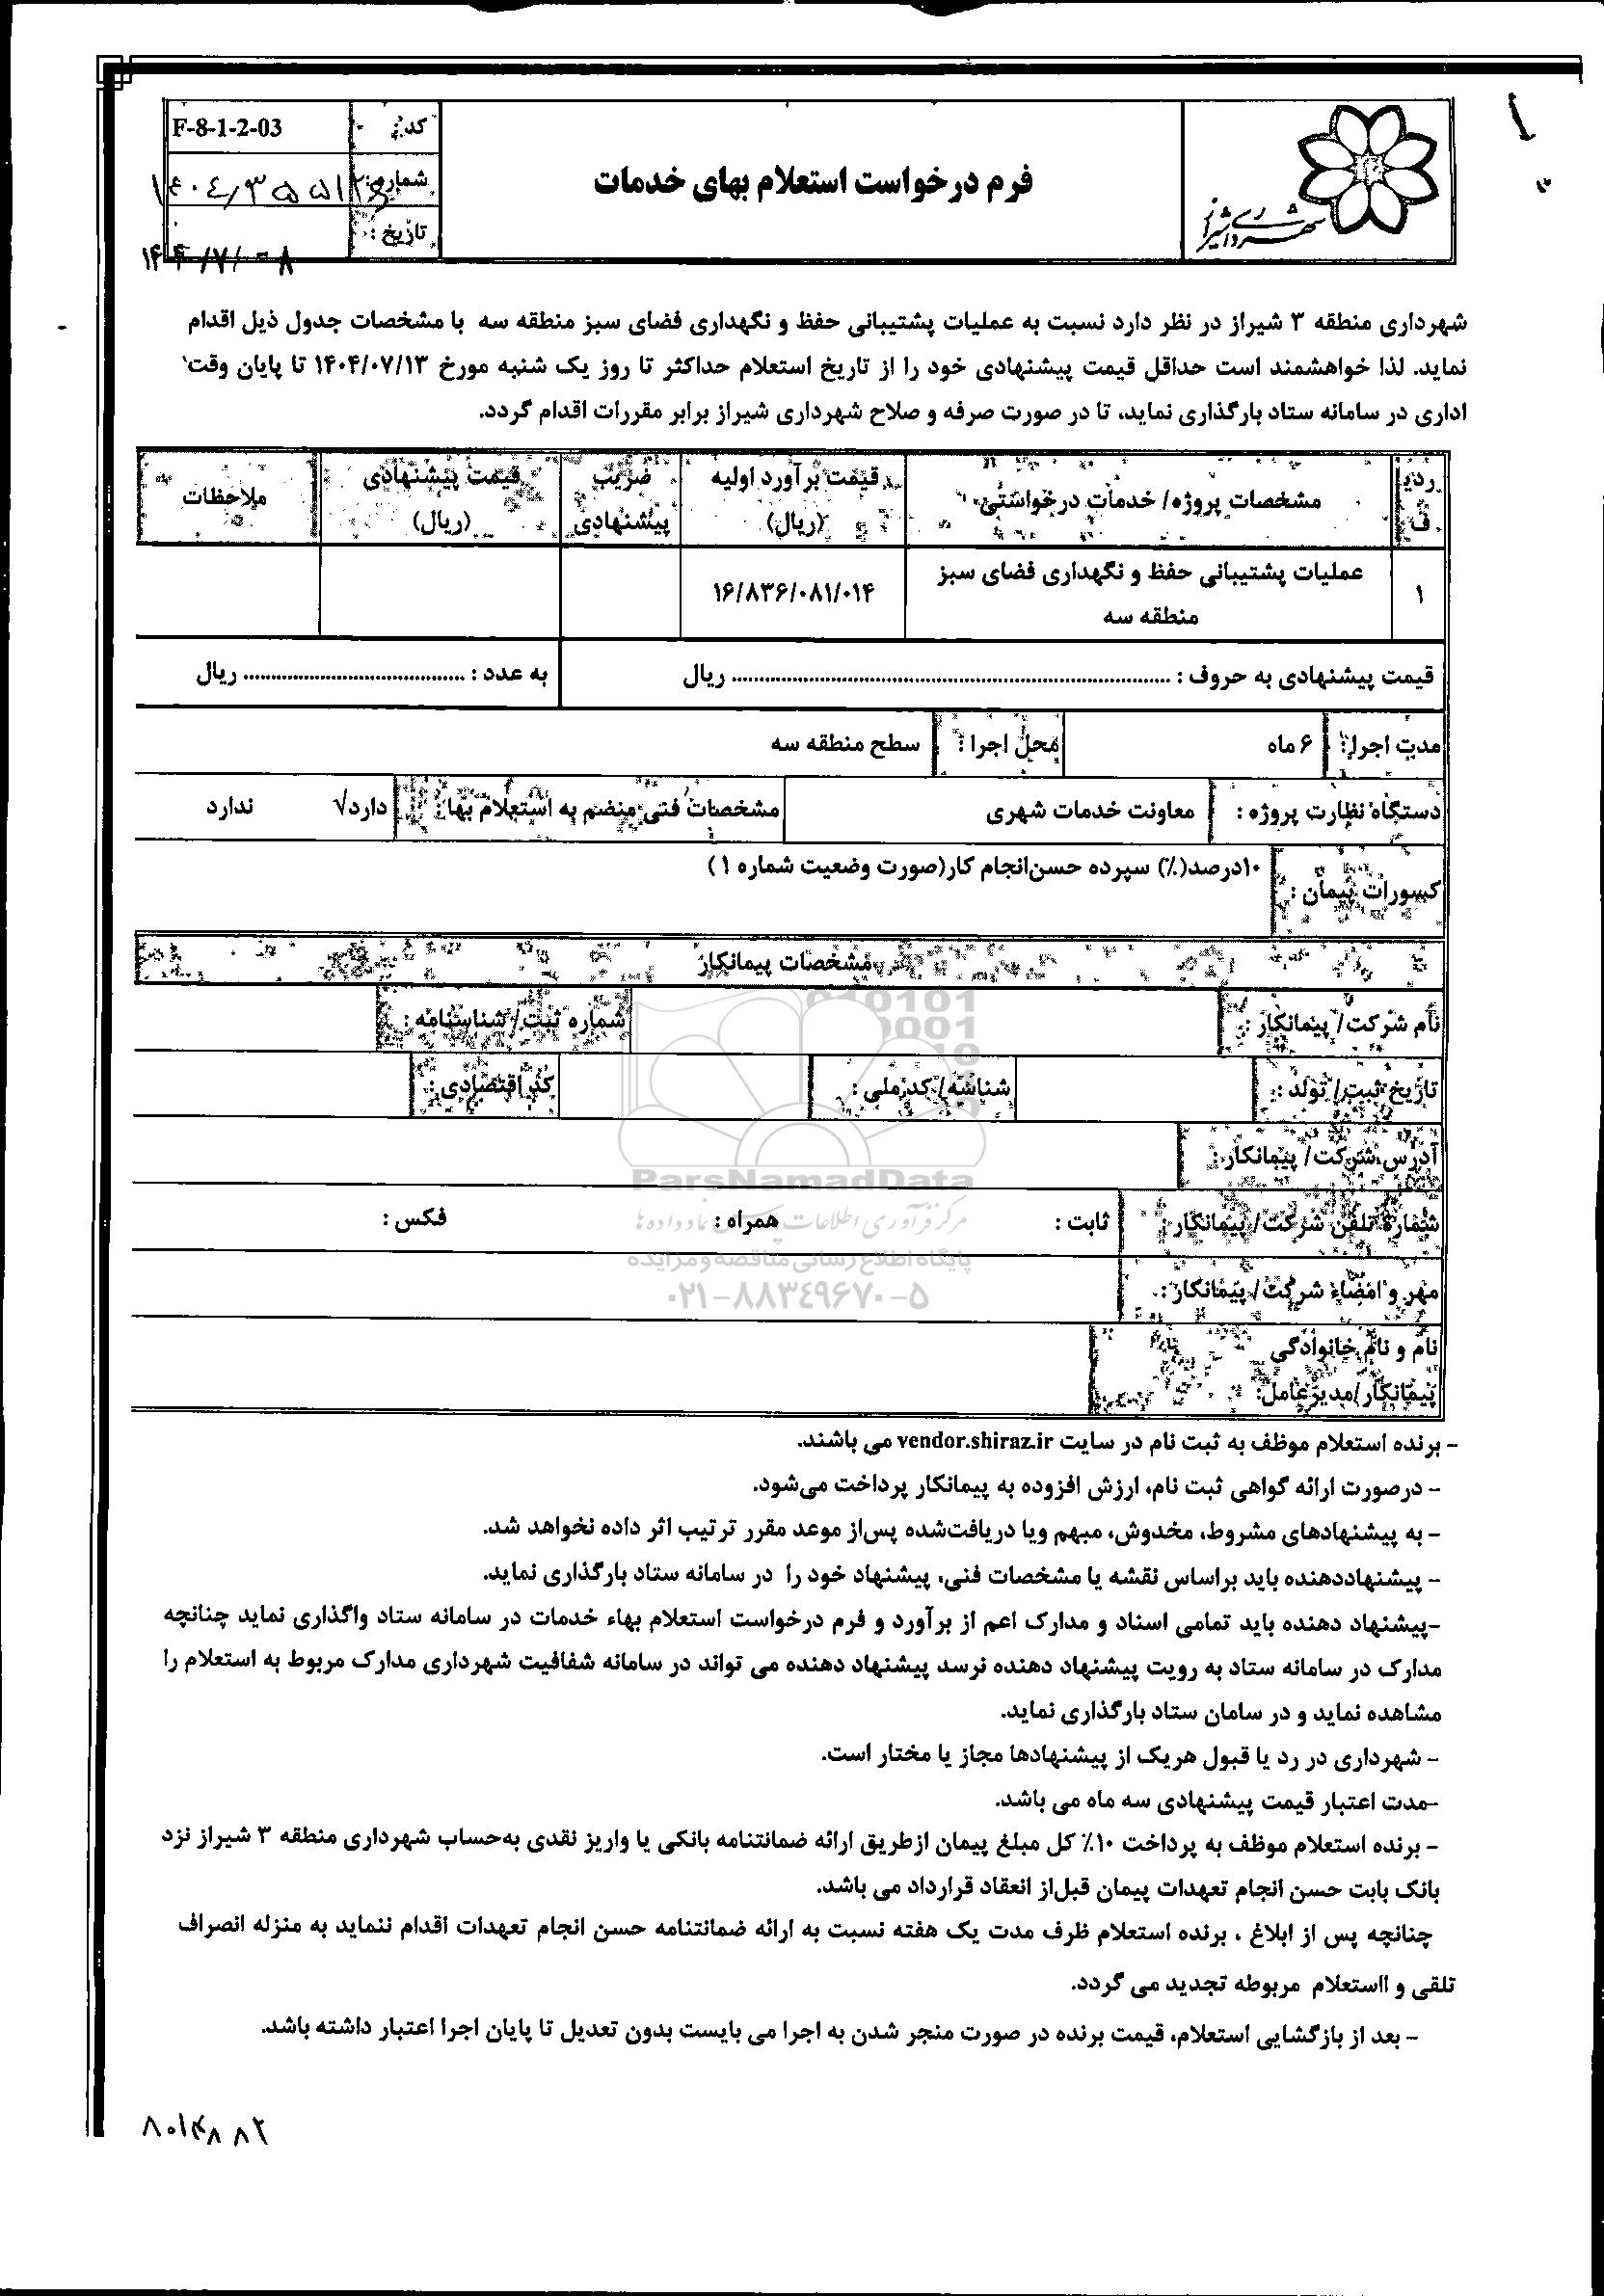 شهرداری شیراز
فرم درخواست استعلام بهای خدمات
کد: F-8-1-2-03
شماره:
تاریخ: ۱۴۰۴/۷/۰۸
شهرداری منطقه ۳ شیراز در نظر دارد نسبت به عملیات پشتیبانی حفظ و نگهداری فضای سبز منطقه سه با مشخصات جدول ذیل اقدام
نماید. لذا خواهشمند است حداقل قیمت پیشنهادی خود را از تاریخ استعلام حداکثر تا روز یک شنبه مورخ ۱۴۰۴/۰۷/۱۳ تا پایان وقت
اداری در سامانه ستاد بارگذاری نماید، تا در صورت صرفه و صلاح شهرداری شیراز برابر مقررات اقدام گردد.
ردیف مشخصات پروژه/ خدمات درخواستی قیمت برآورد اولیه (ریال) ضریب پیشنهادی قیمت پیشنهادی (ریال) ملاحظات
۱ عملیات پشتیبانی حفظ و نگهداری فضای سبز منطقه سه ۱۶/۸۳۶/۰۸۱/۰۱۴
قیمت پیشنهادی به حروف : ........................................ ریال به عدد : ........................................ ریال
مدت اجرا: ۶ ماه محل اجرا : سطح منطقه سه
دستگاه نظارت پروژه : معاونت خدمات شهری مشخصات فنی منضم به استعلام بها : دارد√ ندارد
کسورات پیمان : ۱۰درصد(٪) سپرده حسن‌انجام کار(صورت وضعیت شماره ۱ )
مشخصات پیمانکار
نام شرکت/ پیمانکار : شماره ثبت/ شناسنامه :
تاریخ ثبت/ تولد : شناسه/ کدملی : کد اقتصادی :
آدرس شرکت/ پیمانکار :
شماره تلفن شرکت/ پیمانکار : ثابت : همراه : فکس :
مهر و امضاء شرکت/ پیمانکار :
نام و نام خانوادگی
پیمانکار/مدیرعامل:
ParsNamadData
مرکز فرآوری اطلاعات پارس نماد داده ها
پایگاه اطلاع رسانی مناقصه و مزایده
۰۲۱-۸۸۳۴۹۶۷۰-۵
- برنده استعلام موظف به ثبت نام در سایت vendor.shiraz.ir می باشند.
- درصورت ارائه گواهی ثبت نام، ارزش افزوده به پیمانکار پرداخت می‌شود.
- به پیشنهادهای مشروط، مخدوش، مبهم ویا دریافت‌شده پس‌از موعد مقرر ترتیب اثر داده نخواهد شد.
- پیشنهاددهنده باید براساس نقشه یا مشخصات فنی، پیشنهاد خود را در سامانه ستاد بارگذاری نماید.
-پیشنهاد دهنده باید تمامی اسناد و مدارک اعم از برآورد و فرم درخواست استعلام بهاء خدمات در سامانه ستاد واگذاری نماید چنانچه
مدارک در سامانه ستاد به رویت پیشنهاد دهنده نرسد پیشنهاد دهنده می تواند در سامانه شفافیت شهرداری مدارک مربوط به استعلام را
مشاهده نماید و در سامان ستاد بارگذاری نماید.
- شهرداری در رد یا قبول هریک از پیشنهادها مجاز یا مختار است.
-مدت اعتبار قیمت پیشنهادی سه ماه می باشد.
- برنده استعلام موظف به پرداخت ۱۰٪ کل مبلغ پیمان ازطریق ارائه ضمانتنامه بانکی یا واریز نقدی به‌حساب شهرداری منطقه ۳ شیراز نزد
بانک بابت حسن انجام تعهدات پیمان قبل‌از انعقاد قرارداد می باشد.
چنانچه پس از ابلاغ ، برنده استعلام ظرف مدت یک هفته نسبت به ارائه ضمانتنامه حسن انجام تعهدات اقدام ننماید به منزله انصراف
تلقی و ااستعلام مربوطه تجدید می گردد.
- بعد از بازگشایی استعلام، قیمت برنده در صورت منجر شدن به اجرا می بایست بدون تعدیل تا پایان اجرا اعتبار داشته باشد.